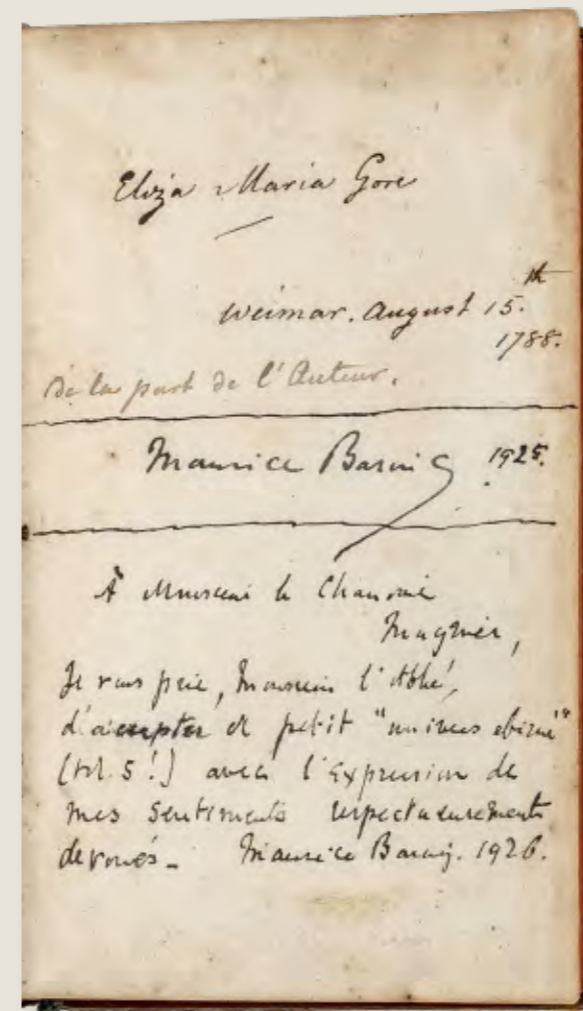 Eliza Maria Gore
Weimar. August 15.th
1788.
De la part de l'Auteur.
Maurice 1925.
À Monsieur le Chanoine
Mugnier,
Je vous prie, Monsieur l'Abbé,
d'accepter ce petit "univers
(vol. 5!) avec l'Expression de
mes sentiments respectueusement
dévoués_ Maurice 1926.